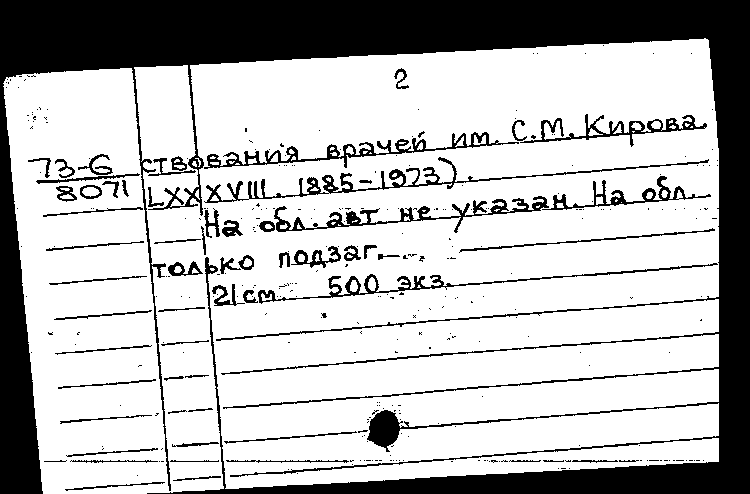 2
73-6
8071
ствования врачей им. С.М. Кирова.
LXXXVIII. 1885-1973).
На обл. авт. не указан. На обл.
только подзаг.
21см. 500 экз.